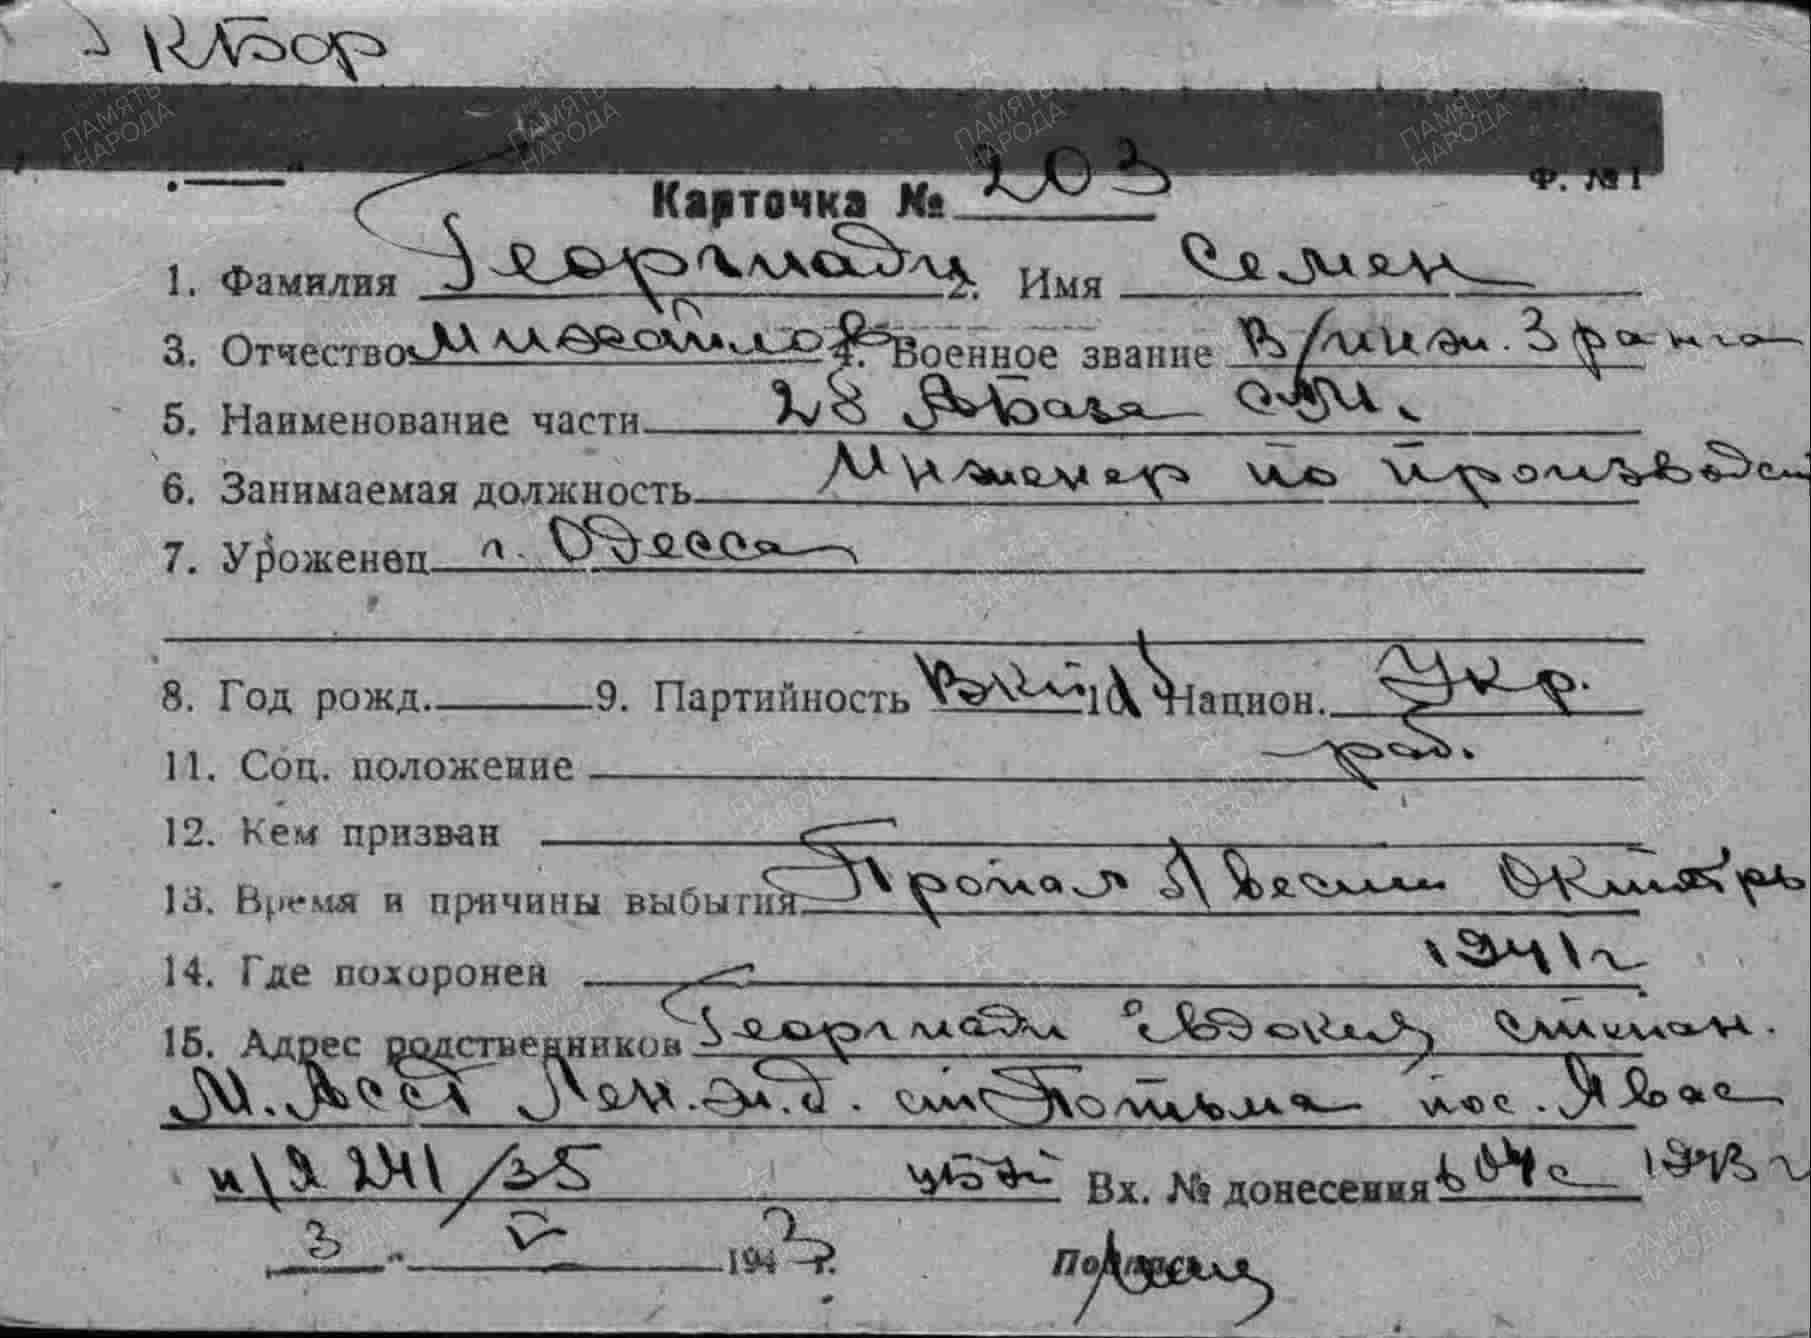 КБор
Ф. №1
Карточка № 203
1. Фамилия Георгиади 2. Имя Семен
3. Отчество Михайлов 4. Военное звание В/инж. 3 ранга
5. Наименование части 28 АБаза
6. Занимаемая должность Инженер по производст
7. Уроженец г. Одесса
8. Год рожд. 9. Партийность ВКП 10 Национ. Укр.
11. Соц. положение раб.
12. Кем призван
13. Время и причины выбытия Пропал б/вести Октябрь
1941 г
14. Где похоронен
15. Адрес родственников Георгиади Евдокия Степан.
М. АССР Лен. ж. д. ст Потьма пос. Явас
п/я 241/35 Вх. № донесения 604 с 1943 г
3 " V 1943 г.
Подпись
ПАМЯТЬ НАРОДА